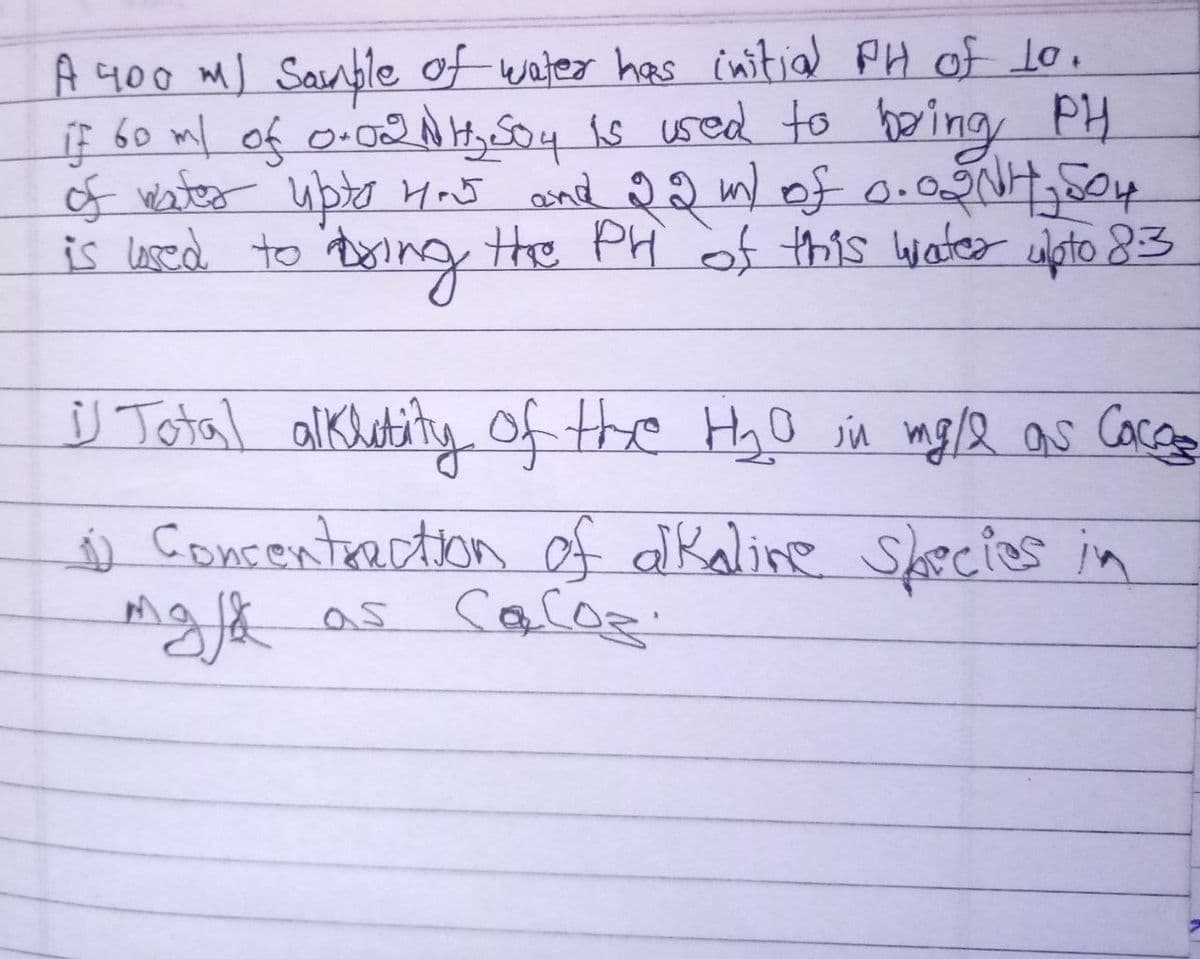 A 400 ml Sample of water has initial PH of 10.
if 60 ml of 0.02 N H₂SO4 is used to bring PH
of water upto 4.5 and 22 ml of 0.02NH₂SO4
is used to bring the PH of this water upto 8.3
i) Total alklutity of the H₂O in mg/l as CaCO3
ii) Concentraction of alkaline Species in
mg/l as CaCO3.